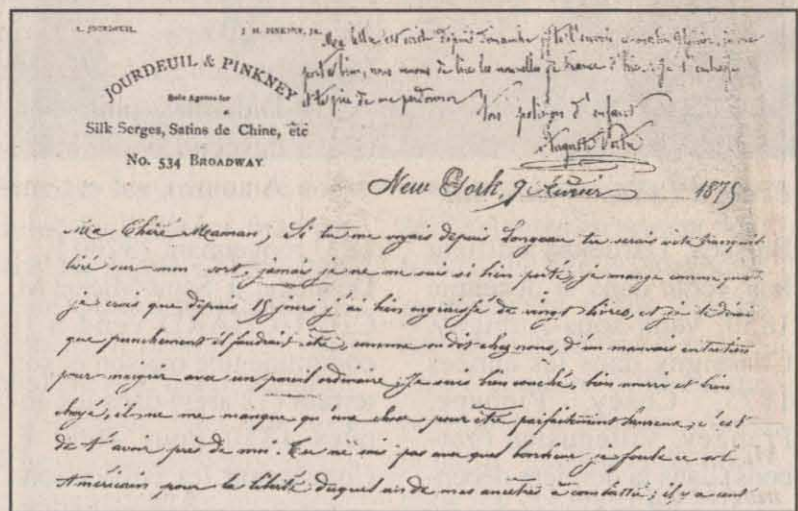 L. JOURDEUIL
J. H. PINKNEY, JR.
JOURDEUIL & PINKNEY
Sole Agents for
Silk Serges, Satins de Chine, etc
No. 534 BROADWAY
Ma est depuis dimanche je me
porte bien, nous de lire les nouvelles de France d'hier. Je t'embrasse
et te prie de me pardonner
Ton polisson d'enfant
Auguste
New York, 9 février 1875
Ma Chère Maman, Si tu me voyais depuis Longeau tu serais vite tranquil
lisé sur mon sort, jamais je ne me suis si bien porté, je mange comme quatre
je crois que depuis 15 jours j'ai bien engraissé de vingt livres, et je te dirai
que franchement il faudrait être, comme on dit chez nous, d'un mauvais entretien
pour maigrir avec un pareil ordinaire, Je suis bien couché, bien nourri et bien
choyé, il ne me manque qu'une chose pour être parfaitement heureux, c'est
de t'avoir près de moi. Tu ne sais pas avec quel bonheur je foule ce sol
Américain pour la liberté duquel un de mes ancêtres a combattu, il y a cent